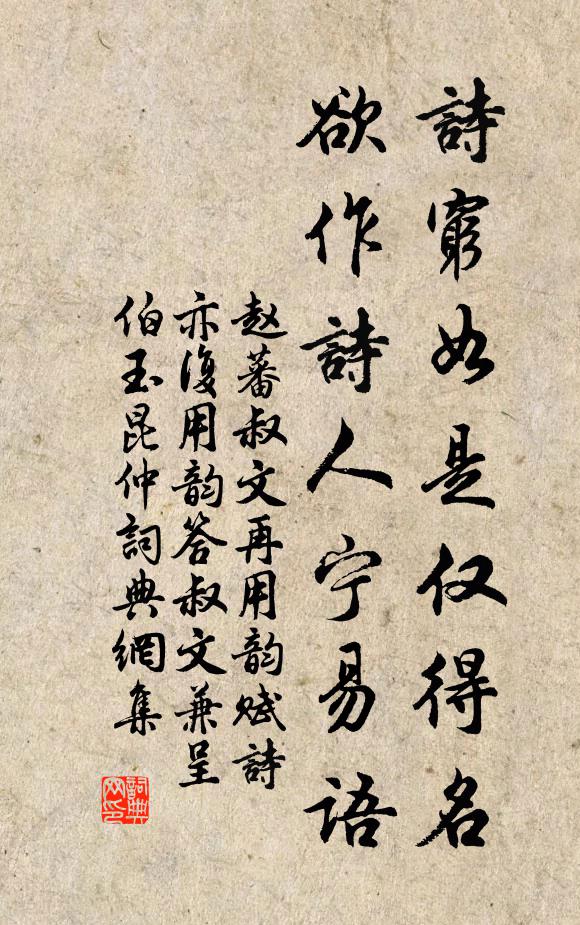 詩窮如是仅得名
欲作詩人宁易語
赵蕃叔文再用韵赋詩
亦復用韵答叔文兼呈
伯玉昆仲詞典網集
詞典
网印